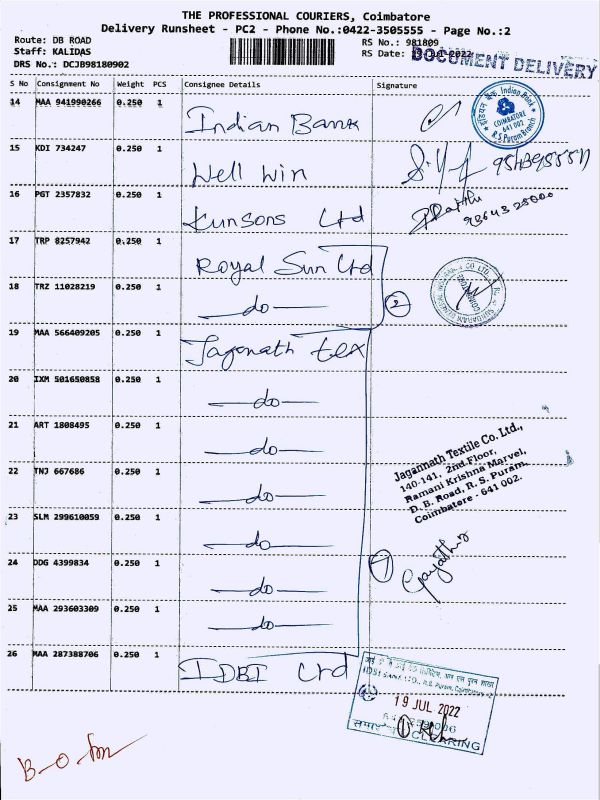 THE PROFESSIONAL COURIERS, Coimbatore
Delivery Runsheet - PC2 - Phone No.:0422-3505555 - Page No.:2
Route: DB ROAD
Staff: KALIDAS
DRS No.: DCJB98180902
RS No.: 981809
RS Date: 19 Jul 2022
DOCUMENT DELIVERY
S No Consignment No Weight PCS Consignee Details Signature
14 MAA 941990266 0.250 1 Indian Bank
Indian Bank
COIMBATORE
641 002
R.S. Puram Branch
15 KDI 734247 0.250 1 Well Win
16 PGT 2357832 0.250 1 Kunsons Ltd
17 TRP 8257942 0.250 1 Royal Sun Ltd
18 TRZ 11028219 0.250 1 —do— 2
19 MAA 566409205 0.250 1 Jagonath tex
20 IXM 501650858 0.250 1 —do—
21 ART 1808495 0.250 1 —do—
Jagannath Textile Co. Ltd.,
140-141, 2nd Floor,
Ramani Krishna Marvel,
D. B. Road, R. S. Puram,
Coimbatore - 641 002.
22 TNJ 667686 0.250 1 —do—
23 SLM 299610059 0.250 1 —do—
24 DDG 4399834 0.250 1 —do— 7
25 MAA 293603309 0.250 1 —do—
26 MAA 287388706 0.250 1 IDBI Ltd
19 JUL 2022
CLEARING